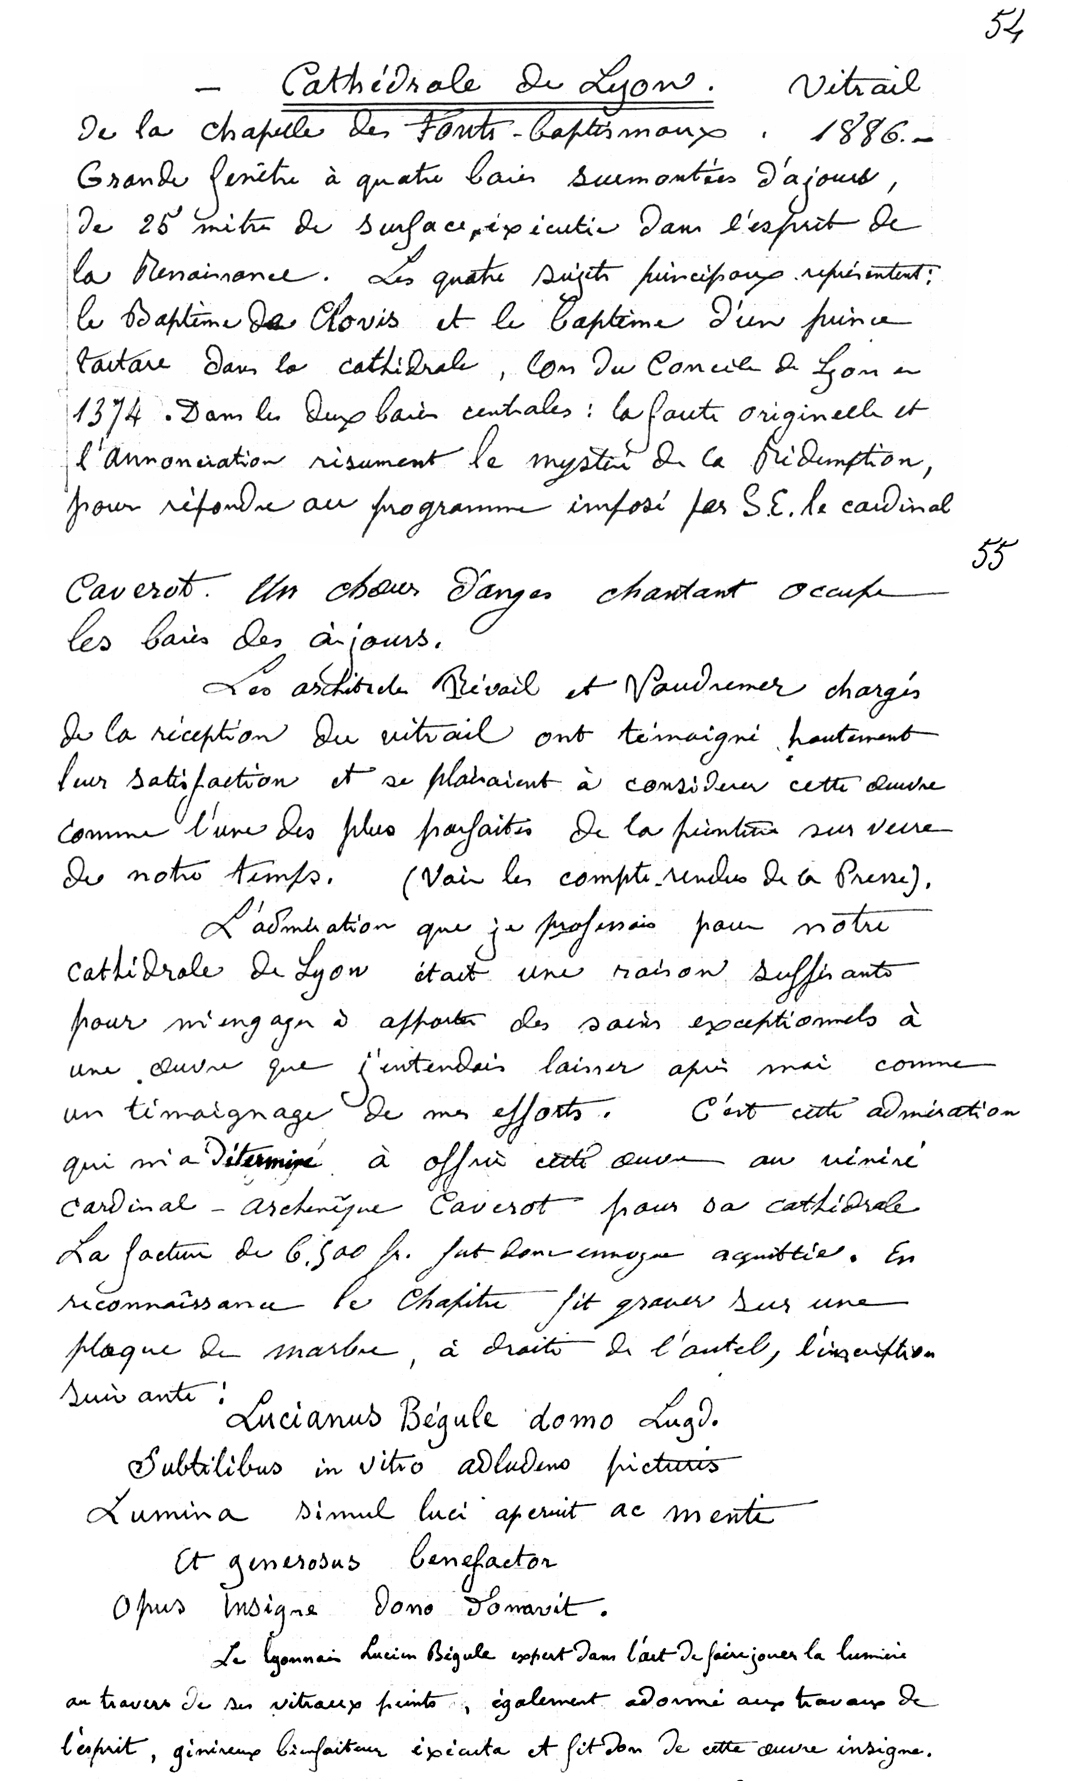 54
– Cathédrale de Lyon. Vitrail
de la chapelle des Fonts-baptismaux. 1886.–
Grande fenêtre à quatre baies surmontées d'ajours,
de 25 mètres de surface, exécutée dans l'esprit de
la Renaissance. Les quatre sujets principaux représentent:
le Baptême de Clovis et le baptême d'un prince
tartare dans la cathédrale, lors du Concile de Lyon en
1374. Dans les deux baies centrales: la faute originelle et
l'annonciation résument le mystère de la Rédemption,
pour répondre au programme imposé par S.E. le cardinal
55
Caverot. Un chœur d'anges chantant occupe
les baies des à-jours.
Les architectes Révoil et Vaudremer chargés
de la réception du vitrail ont témoigné hautement
leur satisfaction et se plaisaient à considérer cette œuvre
comme l'une des plus parfaites de la peinture sur verre
de notre temps. (Voir les compte-rendus de la Presse).
L'admiration que je professais pour notre
cathédrale de Lyon était une raison suffisante
pour m'engager à apporter des soins exceptionnels à
une œuvre que j'entendais laisser après moi comme
un témoignage de mes efforts. C'est cette admiration
qui m'a déterminé à offrir cette œuvre au vénéré
cardinal-archevêque Caverot pour sa cathédrale
La facture de 6.500 fr. fut donc envoyée acquittée. En
reconnaissance le Chapitre fit graver sur une
plaque de marbre, à droite de l'autel, l'inscription
suivante:
Lucianus Bégule domo Lugd.
Subtilibus in vitro adludens picturis
Lumina simul luci aperuit ac menti
Et generosus benefactor
Opus insigne dono donavit.
Le lyonnais Lucien Bégule expert dans l'art de faire jouer la lumière
au travers de ses vitraux peints, également adonné aux travaux de
l'esprit, généreux bienfaiteur exécuta et fit don de cette œuvre insigne.